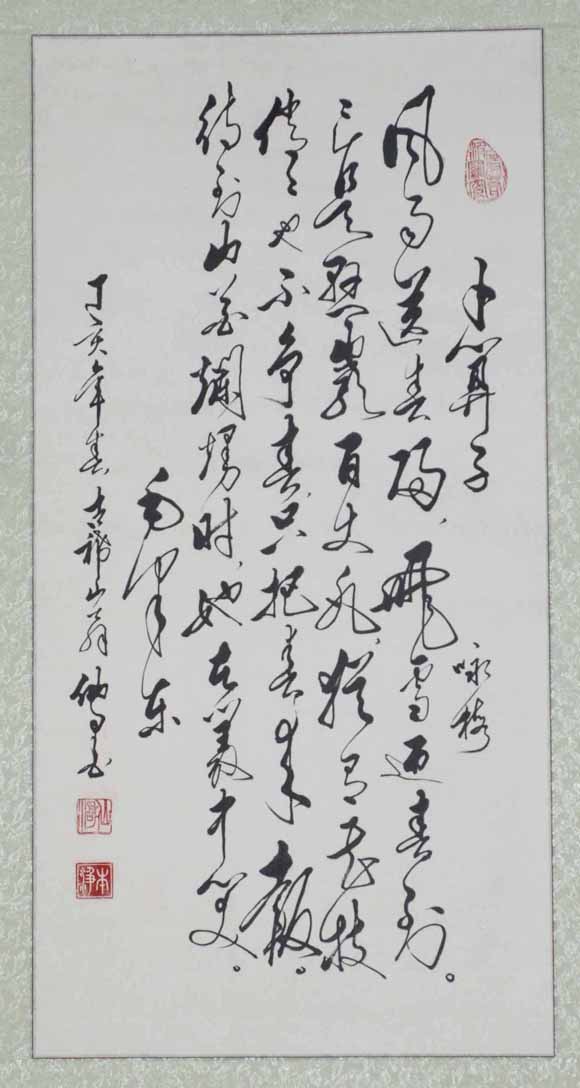 卜算子 咏梅
风雨送春归、飛雪迎春到。
已是悬崖百丈冰、犹有花枝
俏々也不争春、只把春来報。
待到山花爛熳时、她在叢中笑。
毛泽东
丁亥年春古稀山翁书